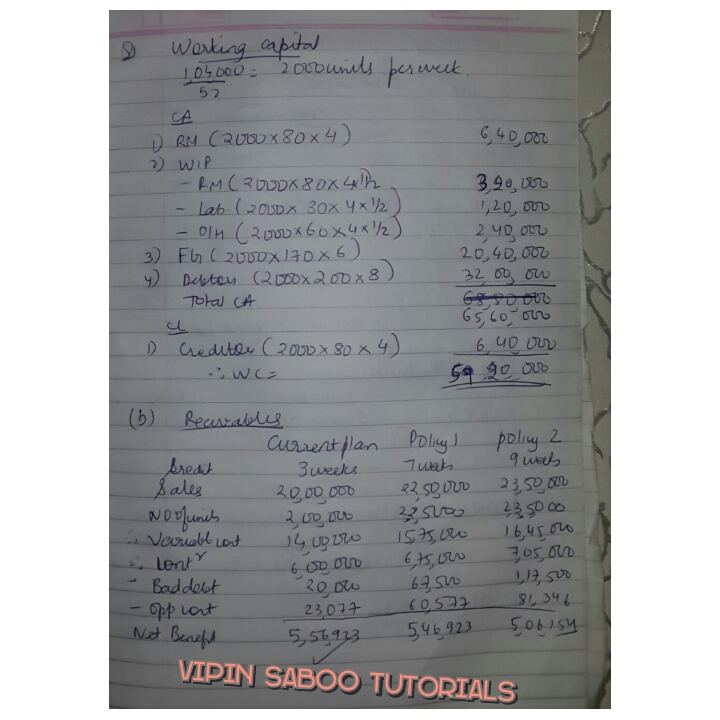 Working capital
1,04,000 = 2000 units per week.
52
CA
1) RM (2000×80×4) 6,40,000
2) WIP
- RM (2000×80×4×1/2 3,20,000
- Lab. (2000× 30×4×1/2) 1,20,000
- O/H (2000×60×4×1/2) 2,40,000
3) FG (2000×170×6) 20,40,000
4) Debtors (2000×200×8) 32,00,000
Total CA
65,60,000
CL
1) Creditors (2000×80×4) 6,40,000
∴ WC = 59,20,000
(b) Receivables
Current plan Policy 1 policy 2
Credit 3 weeks 7 weeks 9 weeks
Sales 20,00,000 22,50,000 23,50,000
No of units 2,00,000 2,25,000 2,35,000
∴ Variable cost 14,00,000 15,75,000 16,45,000
∴ Contr 6,00,000 6,75,000 7,05,000
- Bad debt 20,000 67,500 1,17,500
- Opp cost 23,077 60,577 81,346
Net Benefit 5,56,923 5,46,923 5,06,154
VIPIN SABOO TUTORIALS